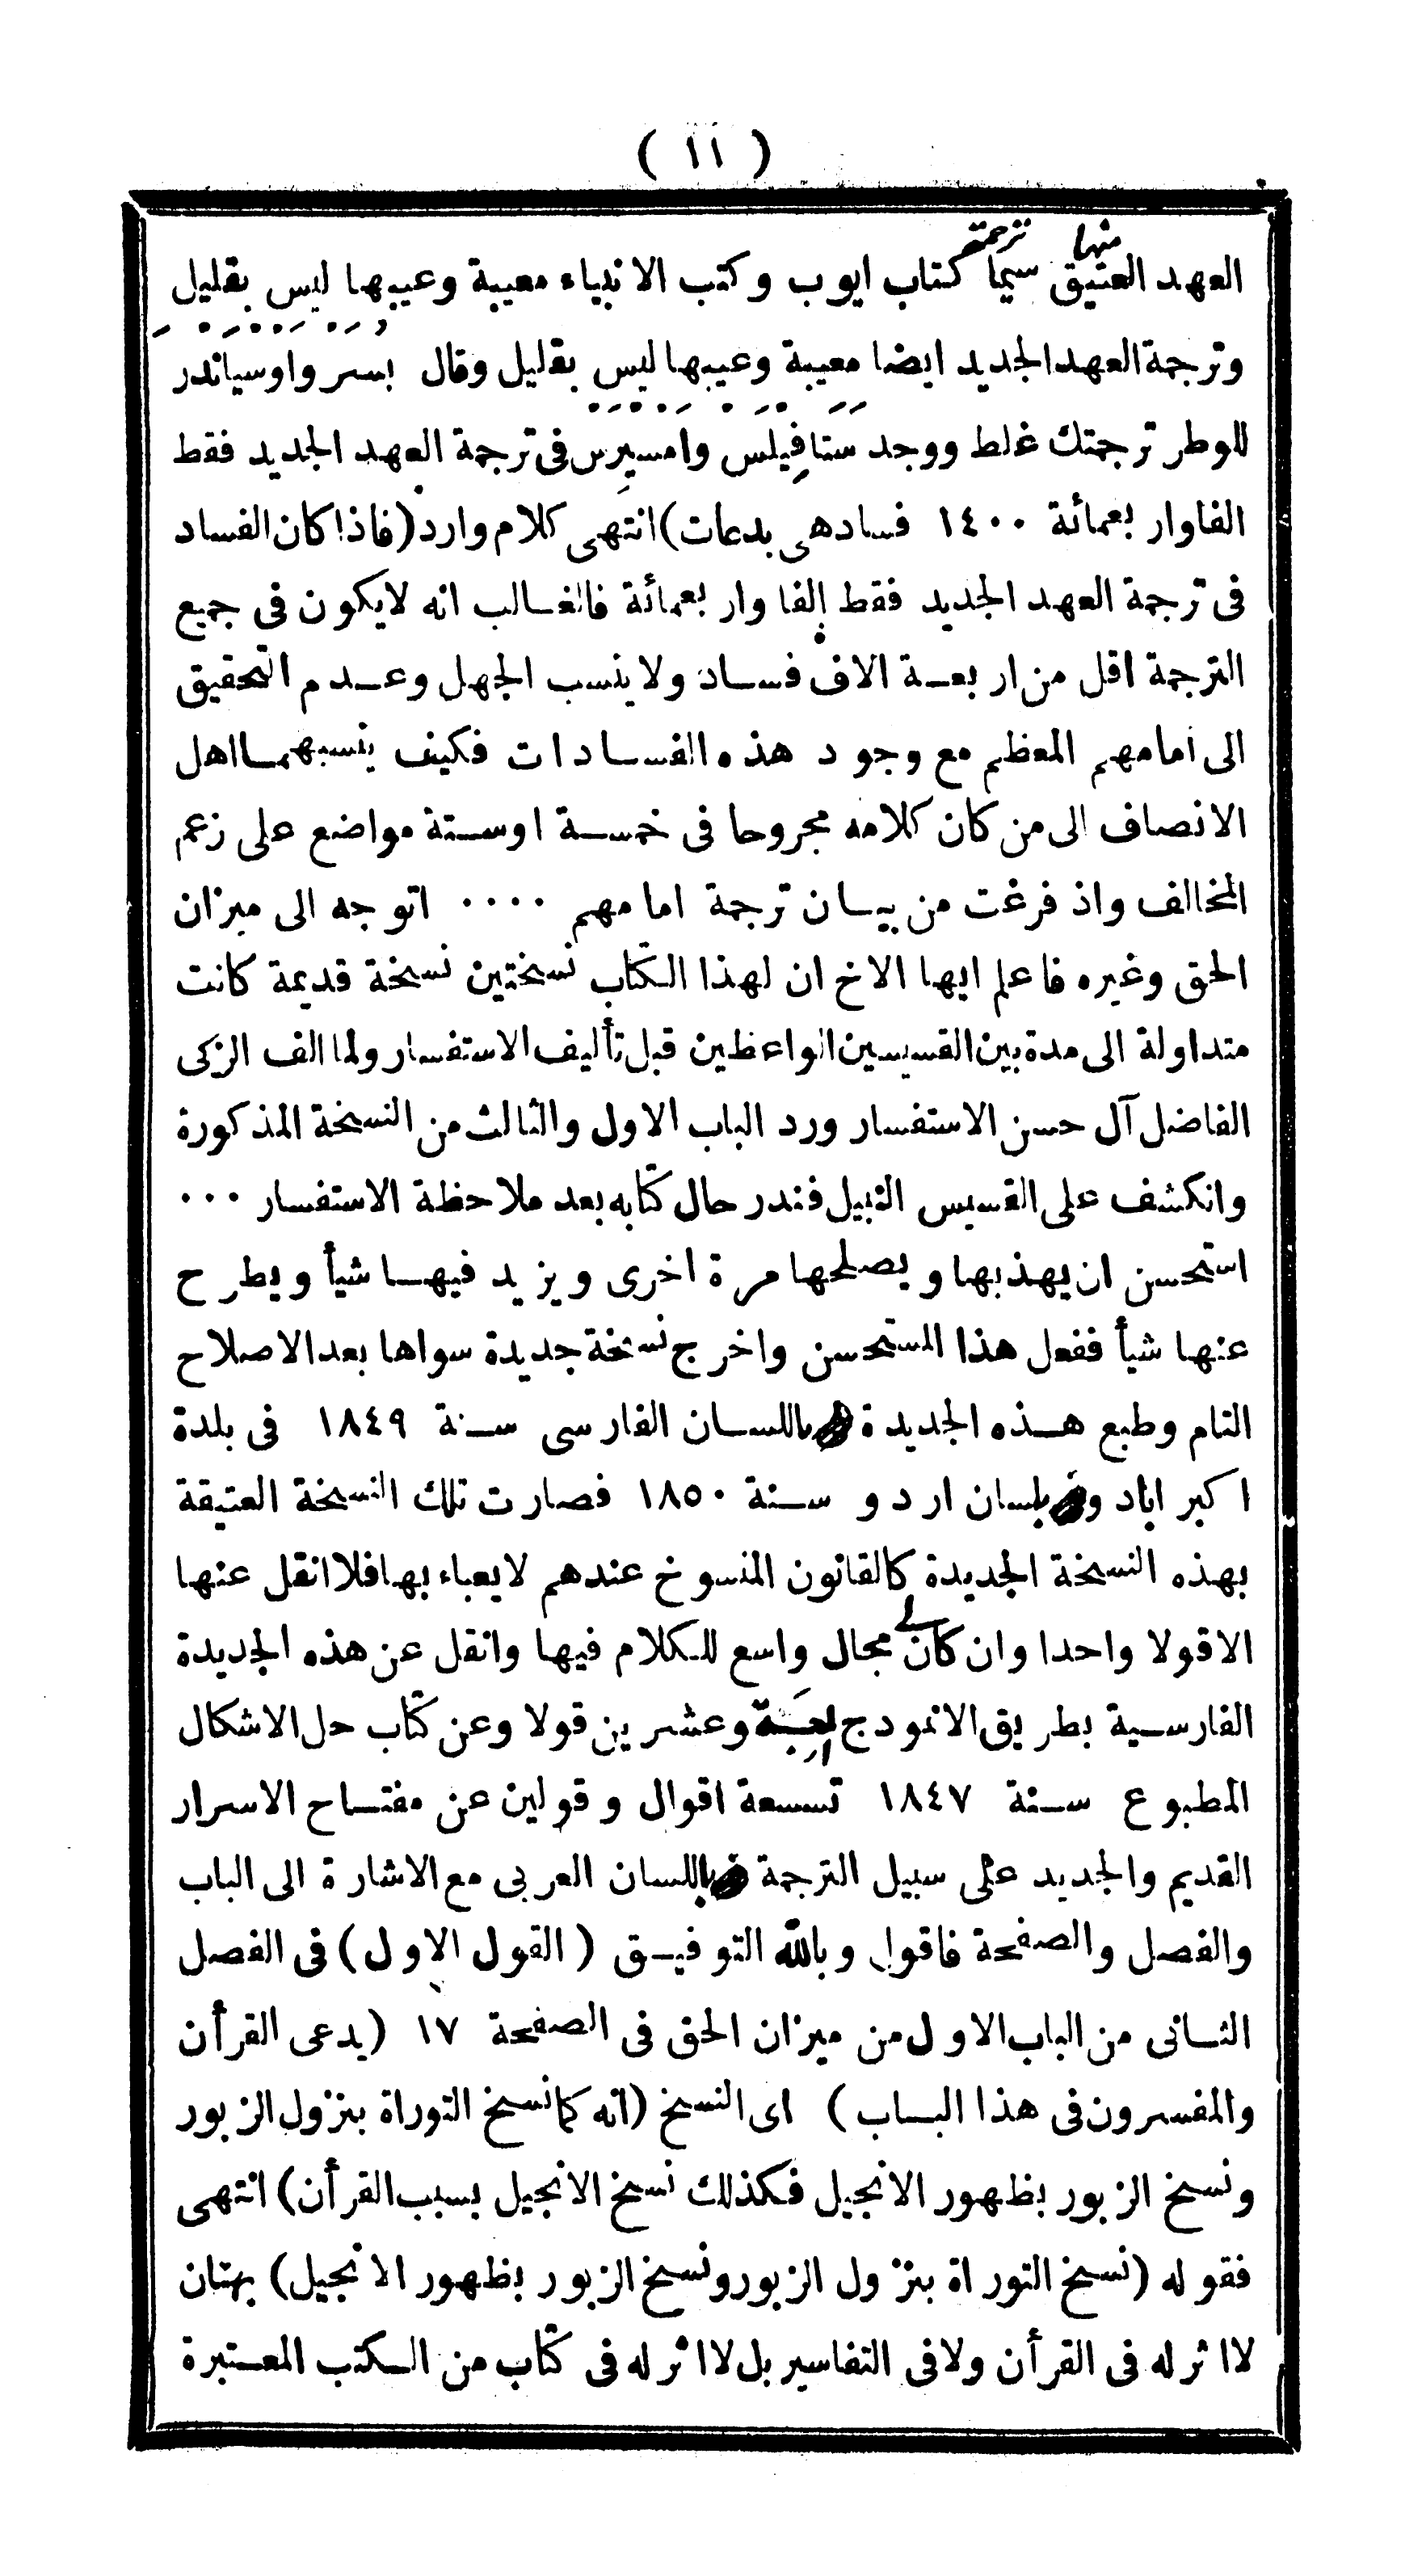 ( ١١ )
العهد العتيق منها سيما ترجمة كتاب ايوب وكتب الانبياء معيبة وعيبها ليس بقليل
وترجمة العهد الجديد ايضا معيبة وعيبها ليس بقليل وقال بسر واوسياندر
للوطر ترجمتك غلط ووجد ستافيلس وامسيرس فى ترجمة العهد الجديد فقط
الفا واربعمائة ١٤٠٠ فساد هى بدعات) انتهى كلام وارد (فاذا كان الفساد
فى ترجمة العهد الجديد فقط الفا واربعمائة فالغالب انه لايكون فى جميع
الترجمة اقل من اربعة الاف فساد ولا ينسب الجهل وعدم التحقيق
الى امامهم المعظم مع وجود هذه الفسادات فكيف ينسبهما اهل
الانصاف الى من كان كلامه مجروحا فى خمسة اوستة مواضع على زعم
المخالف واذ فرغت من بيان ترجمة امامهم ٠٠٠٠ اتوجه الى ميزان
الحق وغيره فاعلم ايها الاخ ان لهذا الكتاب نسختين نسخة قديمة كانت
متداولة الى مدة بين القسيسين الواعظين قبل تأليف الاستفسار ولما الف الزكى
الفاضل آل حسن الاستفسار ورد الباب الاول والثالث من النسخة المذكورة
وانكشف على القسيس النبيل فندر حال كتابه بعد ملاحظة الاستفسار ٠٠٠
استحسن ان يهذبها ويصلحها مرة اخرى ويزيد فيها شيأ ويطرح
عنها شيأ ففعل هذا المستحسن واخرج نسخة جديدة سواها بعد الاصلاح
التام وطبع هذه الجديدة باللسان الفارسى سنة ١٨٤٩ فى بلدة
اكبر اباد و بلسان اردو سنة ١٨٥٠ فصارت تلك النسخة العتيقة
بهذه النسخة الجديدة كالقانون المنسوخ عندهم لايعباء بها فلا انقل عنها
الا قولا واحدا وان كان لى مجال واسع للكلام فيها وانقل عن هذه الجديدة
الفارسية بطريق الانموذج اربعة وعشرين قولا وعن كتاب حل الاشكال
المطبوع سنة ١٨٤٧ تسعة اقوال وقولين عن مفتاح الاسرار
القديم والجديد على سبيل الترجمة باللسان العربى مع الاشارة الى الباب
والفصل والصفحة فاقول وبالله التوفيق (القول الاول) فى الفصل
الثانى من الباب الاول من ميزان الحق فى الصفحة ١٧ (يدعى القرأن
والمفسرون فى هذا الباب) اى النسخ (انه كما نسخ التوراة بنزول الزبور
ونسخ الزبور بظهور الانجيل فكذلك نسخ الانجيل بسبب القرأن) انتهى
فقوله (نسخ التوراة بنزول الزبور ونسخ الزبور بظهور الانجيل) بهتان
لا اثر له فى القرأن ولا فى التفاسير بل لا اثر له فى كتاب من الكتب المعتبرة